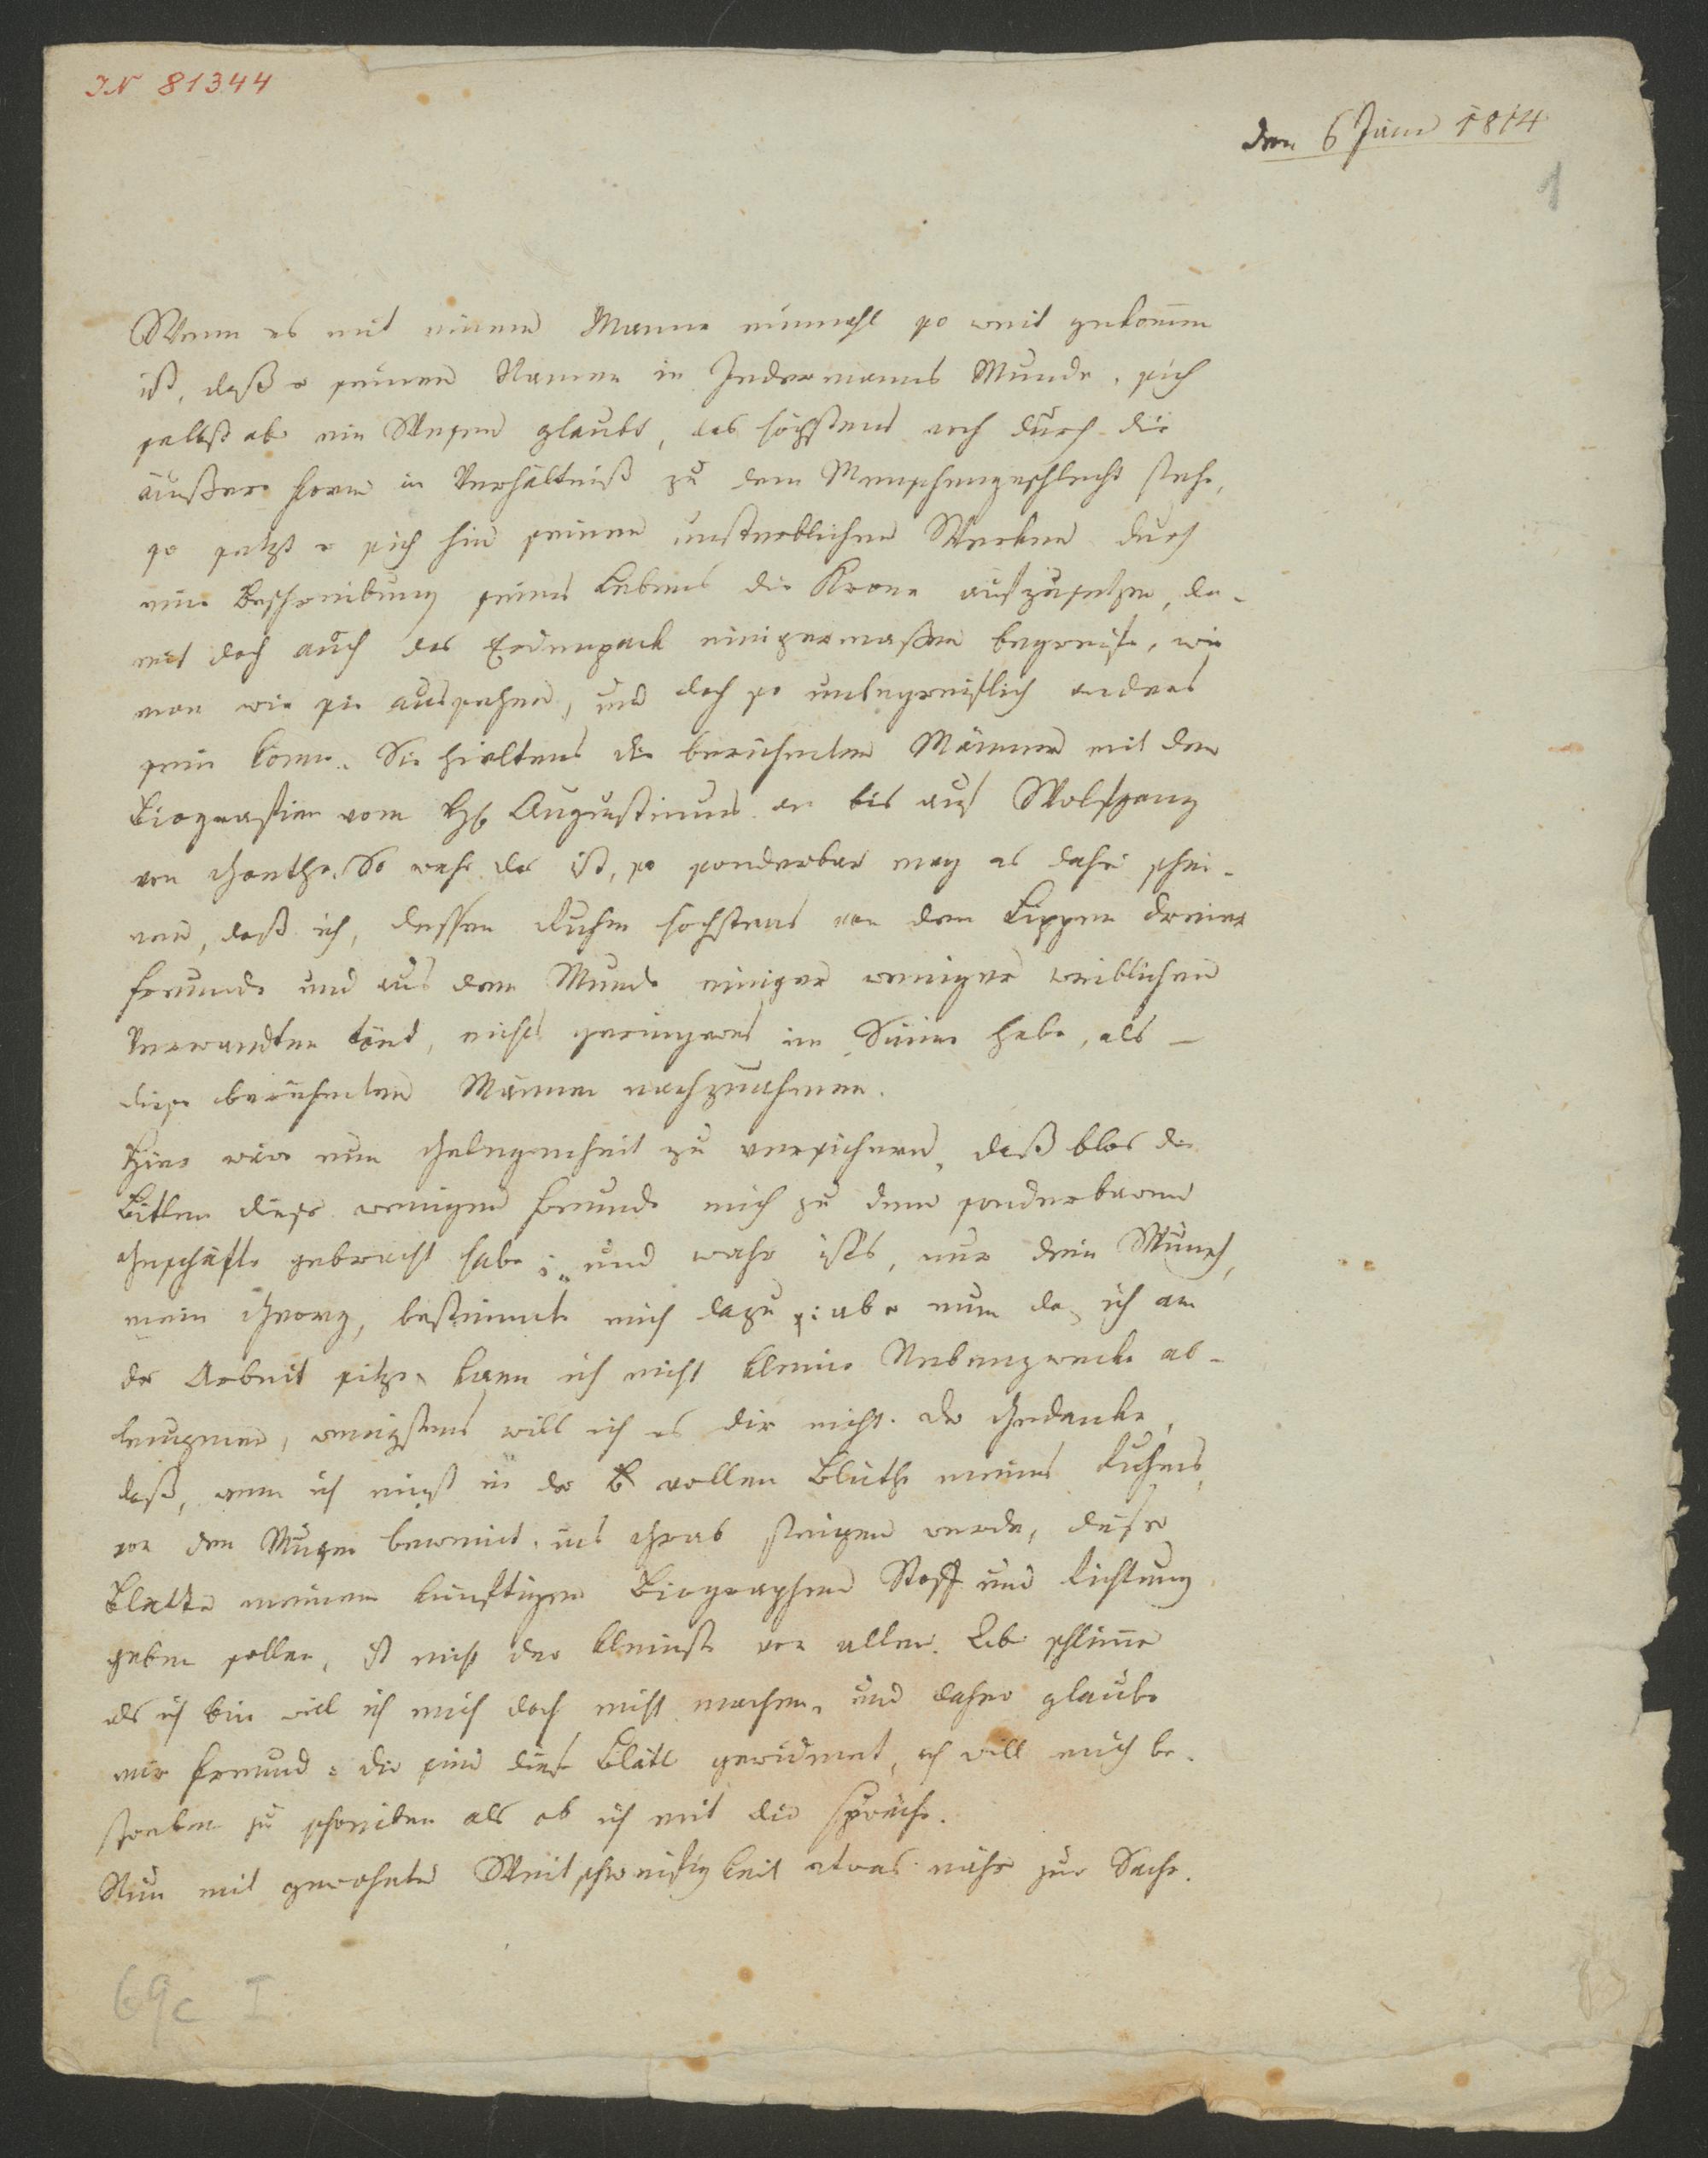 IN 81344
den 6 Juni 1814
1
Wenn es mit einem Manne einmahl so weit gekom̄en
ist, daß er seinen Namen in Jedermanns Munde, sich
selbst aber ein Wesen glaubt, das höchstens noch durch die
äußere Form in Verhältniß zu dem Menschengeschlecht steht,
so setzt er sich hin seinen unsterblichen Werken durch
eine Beschreibung seines Lebens die Krone aufzusetzen, da-
mit doch auch das Erdenpack einigermaßen begreife, wie
man wie sie aussehen, und doch so unbegreiflich anders
sein könne. So hieltens die berühmten Männer mit den
Biografien vom Augustinus an bis auf Wolfgang
von Goethe. So wahr das ist, so sonderbar mag es daher schei-
nen, daß ich, dessen Ruhm höchstens von den Lippen dreier
Freunde und aus dem Munde einiger weniger weiblichen
Verwandten tönt, nichts geringeres im Sinne habe, als –
diese berühmten Männer nachzuahmen.
Hier wäre nun Gelegenheit zu versichern, daß blos die
Bitten dieser wenigen Freunde mich zu dem sonderbaren
Geschäfte gebracht habe; und wahr ists, nur dein Wunsch,
mein Georg, bestimmte mich dazu: aber nun da ich an
der Arbeit sitze, kann ich nicht kleine Nebenzwecke ab-
leugnen, wenigstens will ich es dir nicht. Der Gedanke,
daß, wenn ich einst in der vollen Blüthe meines Ruhms,
von den Musen beweint, ins Grab steigen werde, diese
Blätter meinem künftigen Biographen Stoff und Richtung
geben sollen, ist nicht der kleinste von allen. Aber schlim̄er
als ich bin will ich mich doch nicht machen, und daher glaube
mir Freund: dir sind diese Blätter gewidmet, ich will mich be-
streben zu schreiben als ob ich mit dir spräche.
Nun mit gewohnter Weitschweifigkeit etwas näher zur Sache.
69c I